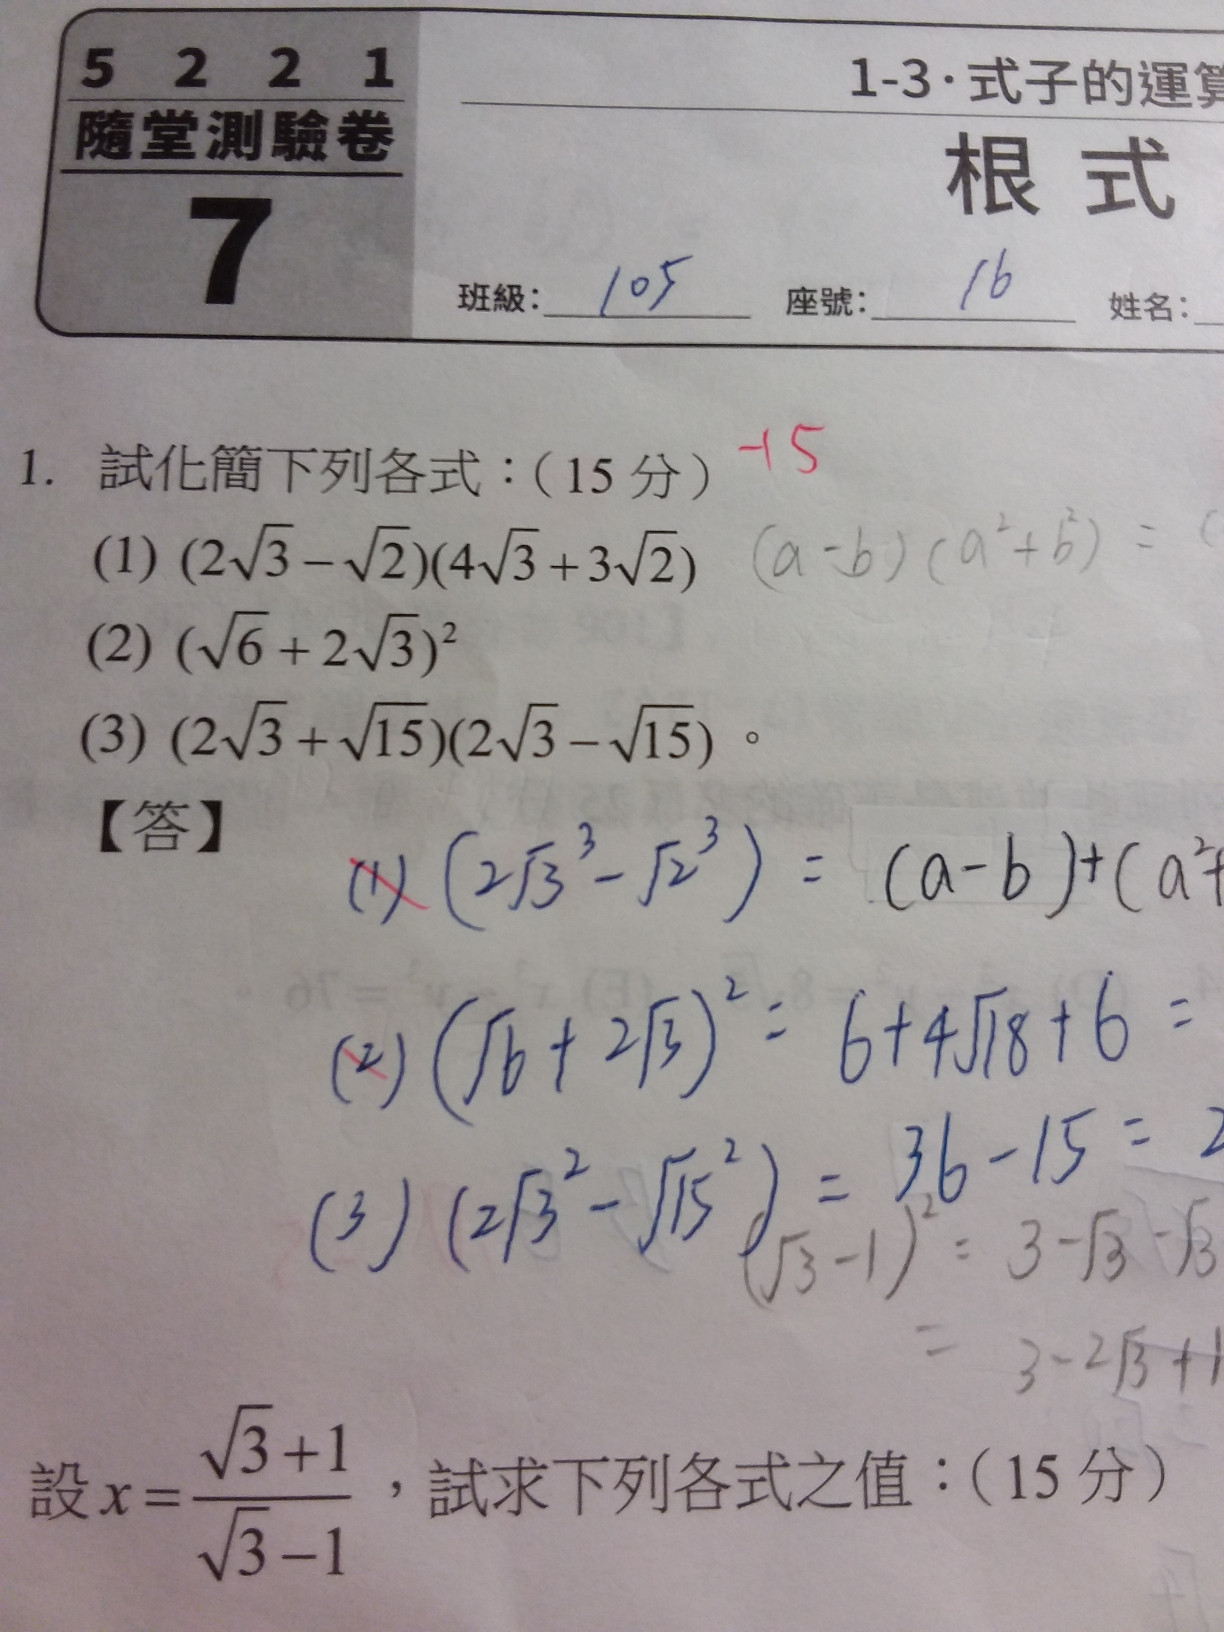 5 2 2 1
隨堂測驗卷
7
1-3·式子的運算
根式
班級: 105 座號: 16 姓名:
1. 試化簡下列各式:(15 分) -15
(1) (2√3 − √2)(4√3 + 3√2) (a-b)(a²+b²) = (
(2) (√6 + 2√3)²
(3) (2√3 + √15)(2√3 − √15)。
【答】
(1) (2√3³ - √2³) = (a-b)+(a²+
(2) (√6 + 2√3)² = 6+4√18+6 =
(3) (2√3² - √15²) = 36-15 = 2
(√3-1)² = 3-√3-√3
= 3-2√3+1
設 x = (√3+1)/(√3−1),試求下列各式之值:(15 分)